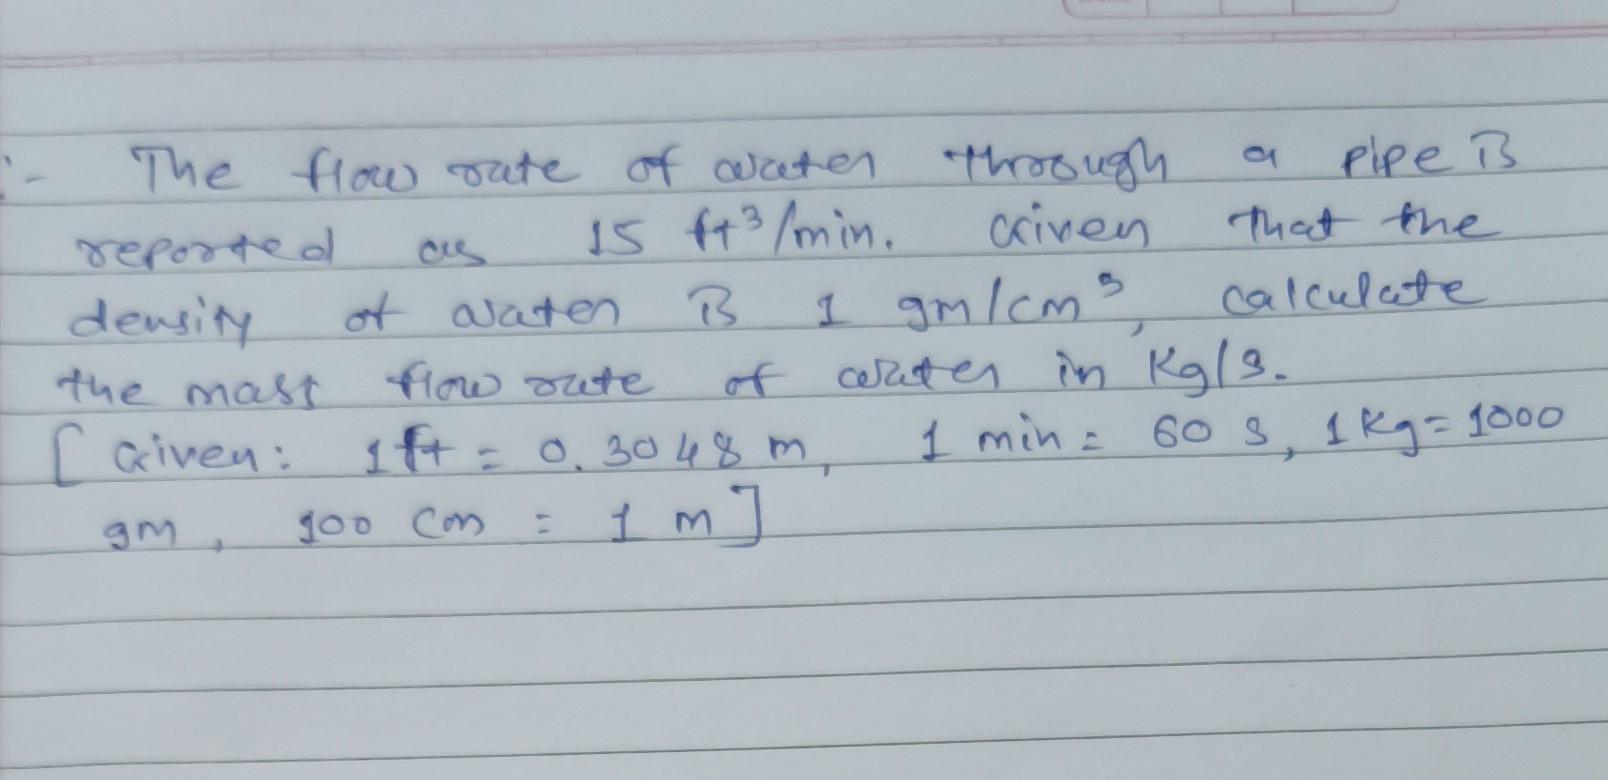 :- The flow rate of water through a pipe is
reported as 15 ft³/min. Given that the
density of water is 1 gm/cm³, calculate
the mass flow rate of water in Kg/s.
[Given: 1ft = 0.3048 m, 1 min = 60 s, 1 Kg = 1000
gm, 100 cm = 1 m]